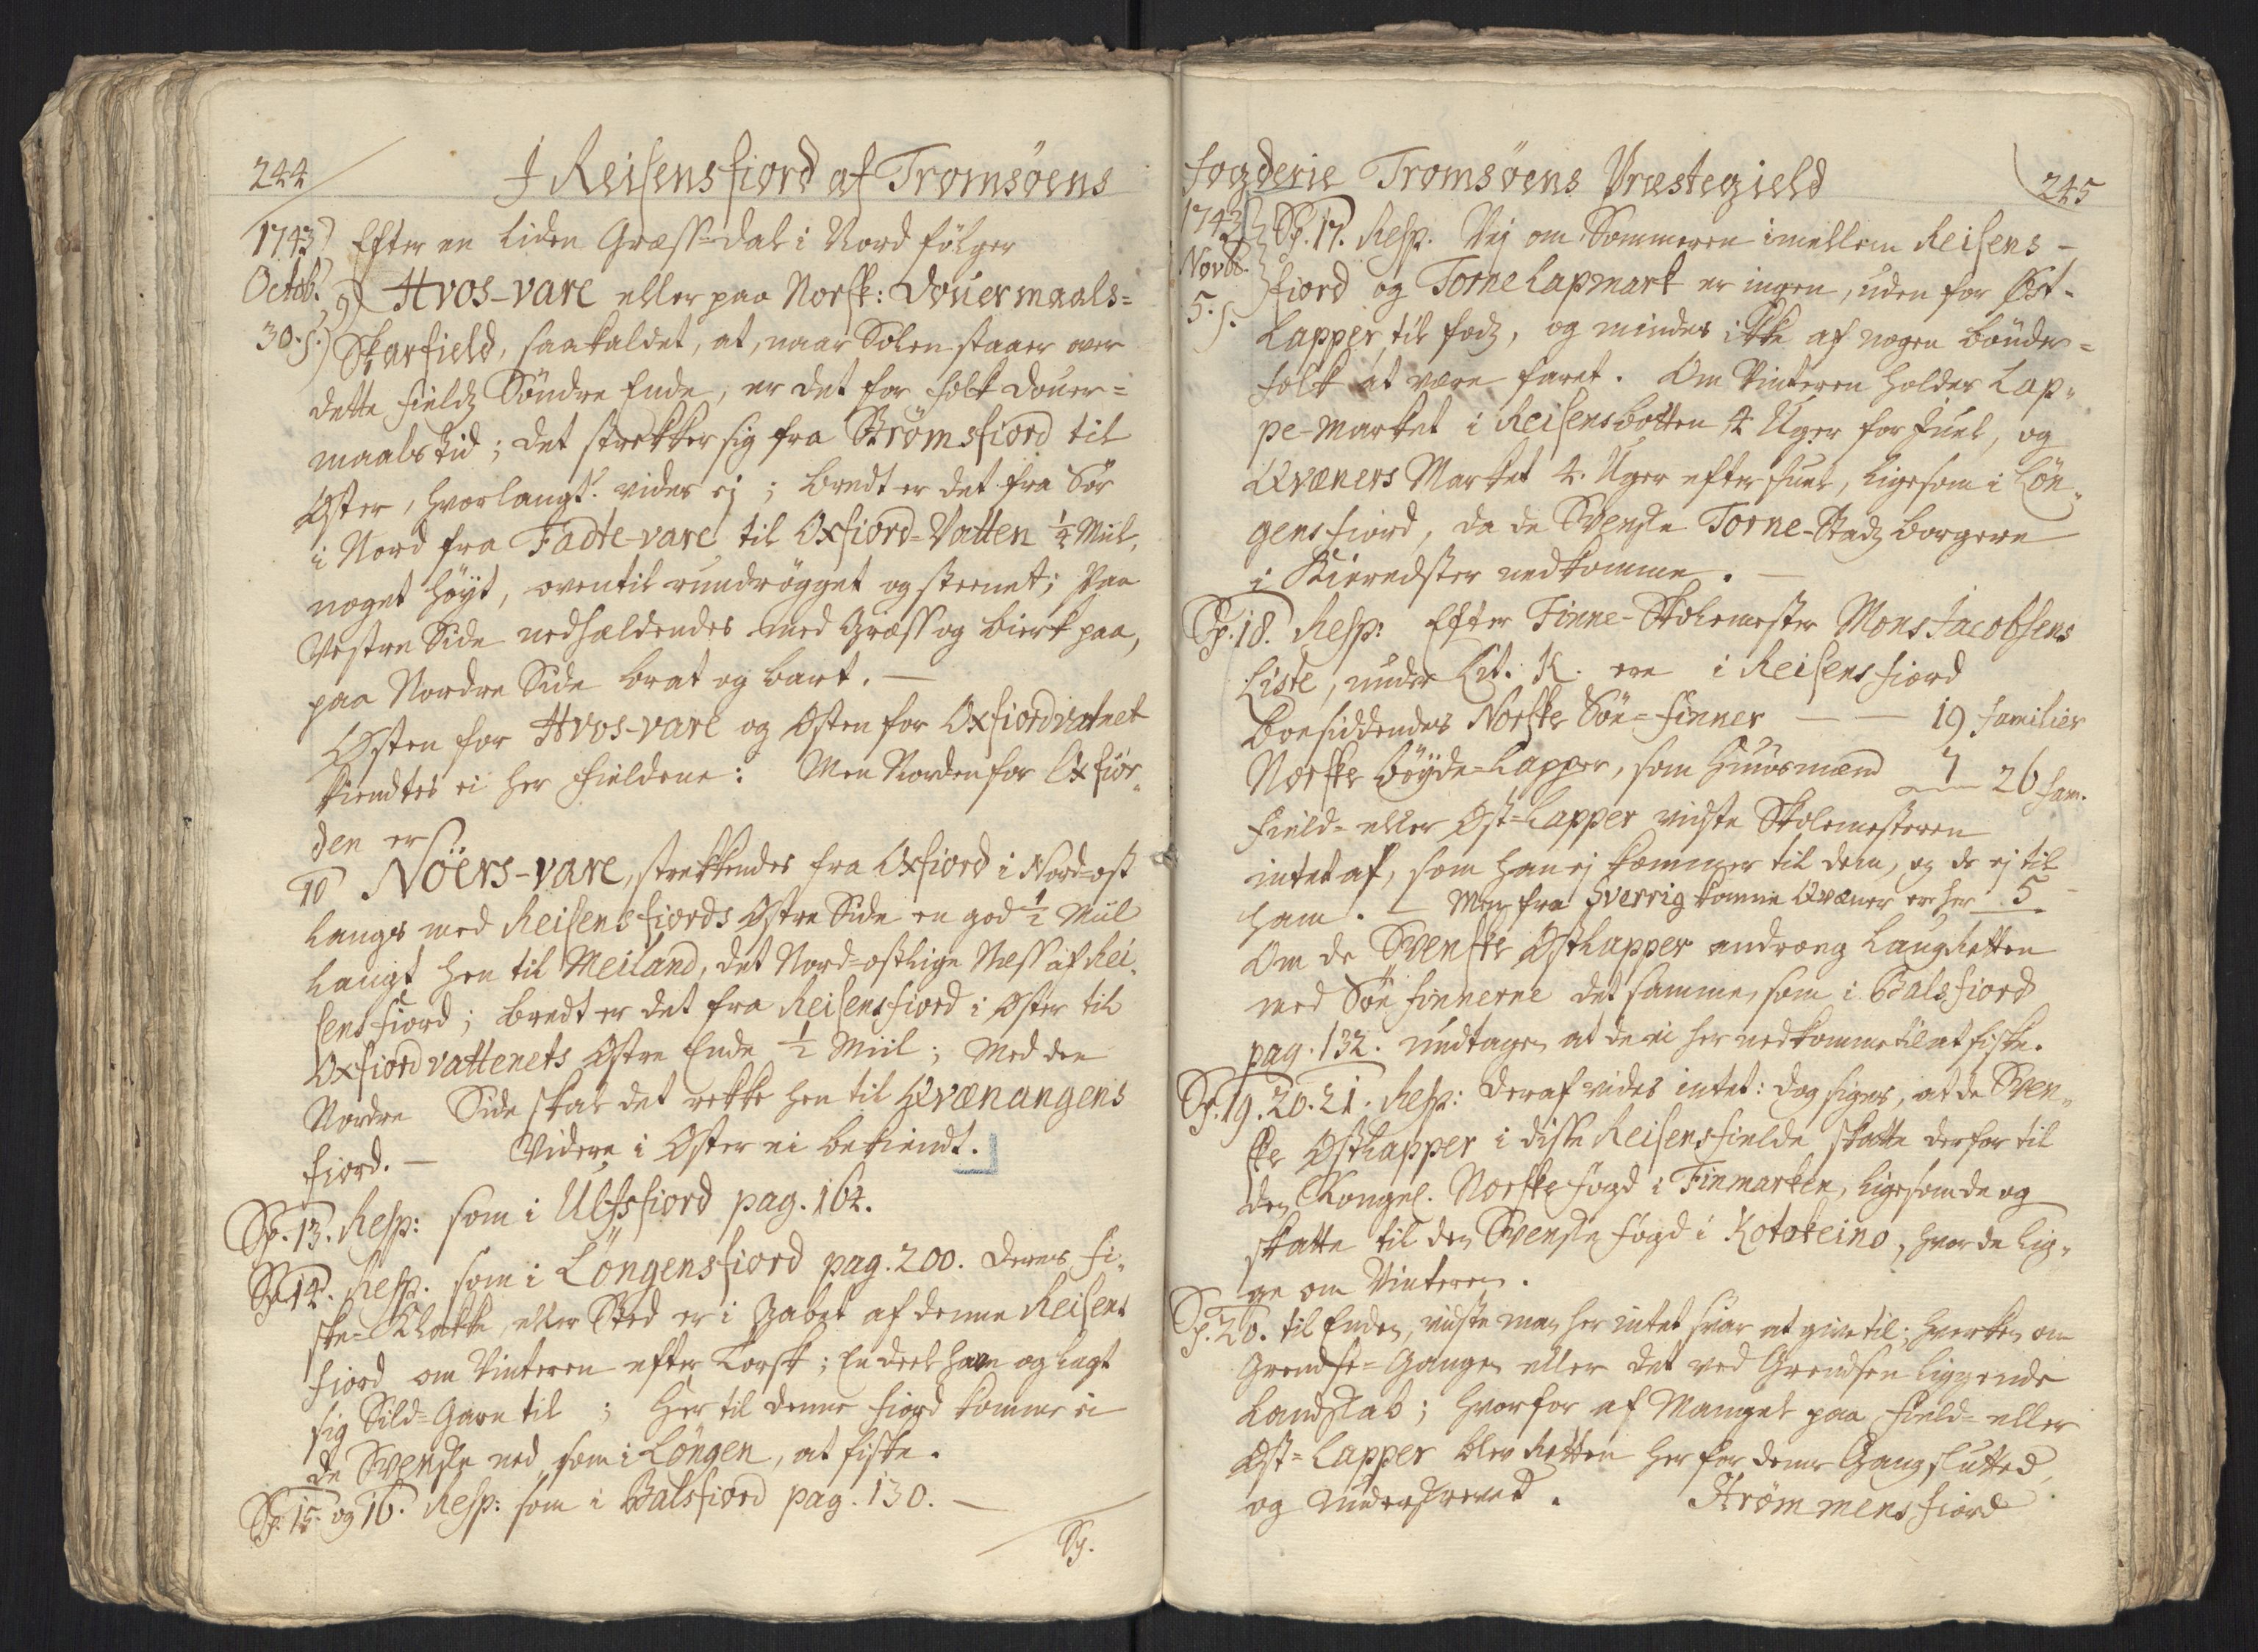 244
I Reisensfiord af Tromsøens
1743 Efter en liden Græss-dal i Nord følger
Octob. 9) Hvos-vare eller paa Norsk: Douermaals=
30. s. Skarfield, saakaldet, at, naar Solen staaer over
dette Fields Søndre Ende, er det for folk Douer=
maals Tid; det strekker sig fra Strømsfiord til
Øster, hvorlangt vides ej; bredt er det fra Sør
i Nord fra Fadte-vare til Oxfiord-Vatten ¼ Miil,
noget høyt, oventil rundrøgget og steenet; Paa
Vestre Side nedhældendes med Græss og Bierk paa,
paa Nordre Side brat og bart. —
Østen for Hvos-vare og Østen for Oxfiordvatnet
kiendtes ei her Fieldene: Men Norden for Oxfior=
den er
10 Nöers-vare, strekkendes fra Oxfiord i Nord-ost
langs med Reisensfiords Østre Side en god ½ Miil
langt hen til Meiland, det Nord-ostlige Næss af Rei=
sensfiord; bredt er det fra Reisensfiord i Øster til
Oxfiordvattenets Østre Ende ½ Miil; Med den
Nordre Side skal det rekke hen til Qvænangens
fiord. — Videre i Øster ei bekiendt.
Sp. 13. Resp: som i Ulfsfiord pag. 164.
Sp. 14. Resp. som i Løngensfiord pag. 200. Deres Fi=
ske-Klakke, eller Sted er i Gabet af denne Reisens
fiord om Vinteren efter Torsk; En deel have og lagt
sig Sild-Garn til; Her til denne Fiord komme ei
de Svenske ned, som i Løngen, at fiske.
Sp. 15. og 16. Resp: som i Balsfiord pag. 130. —
Sp.
Fogderie Tromsøens Præstegield
245
1743 Sp. 17. Resp. Vej om Sommeren imellem Reisens-
Novbr. fiord og Torne Lapmark er ingen, uden for Øst-
5. s. Lapper til fods, og mindes ikke af nogen Bønder=
folk at være faret. Om Vinteren holdes Lap=
pe-Market i Reisensbotten 4 Uger for Juel, og
Qvæners Market 4. Uger efter Juel, ligesom i Løn=
gensfiord, da de Svenske Torne-Stads borgere
i Kieredster nedkomme. —
Sp. 18. Resp: Efter Finne-Skolemester Mons Jacobsens
Liste, under Lit. K. ere i Reisensfiord
Boesiddendes Norske Søe-Finner — — 19 familier
Norske Bøyde-Lapper, som Huusmænd 7 26 fam.
Field- eller Øst-Lapper vidste Skolemesteren
intet af, som han ej kommer til dem, og de ej til
ham. — Men fra Sverrig komne Qvæner er her 5 -
Om de Svenske Østlapper androeg Laugretten
med Søe Finnerne det samme, som i Balsfiord
pag. 132. undtagen at de ei her nedkomme til at fiske.
Sp. 19. 20. 21. Resp: Deraf vides intet: dog siges, at de Sven=
ske Østlapper i disse Reisensfielde skatte derfor til
den Kongel. Norske Fogd i Finmarken, ligesom de og
skatte til den Svenske Fogd i Kotokeino, hvor de lig=
ge om Vinteren.
Sp. 20. til Enden, vidste man her intet svar at give til; hverken om
Grendse-Gangen eller det ved Grendsen liggende
Landskab; hvorfor af Mangel paa Field- eller
Øst-Lapper blev Retten her for denne Gang slutted,
og underskreved. Strømmensfiord